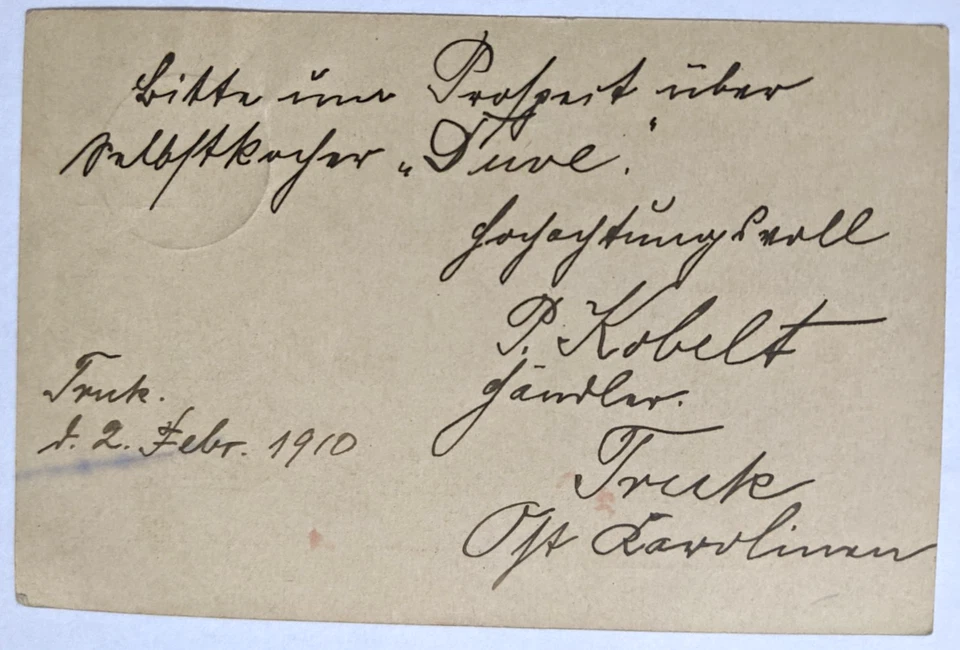 Bitte um Prospect über
Selbstkocher „Duve“.
Hochachtungsvoll
P. Kobelt
Händler.
Truk
Ost Karolinen
Truk.
d. 2. Febr. 1910